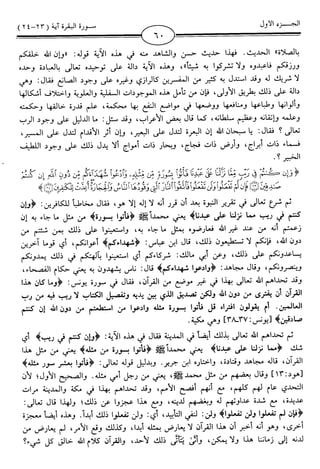 الجـــزء الأول
سورة البقرة آية (٢٣-٢٤)
٦٠
بالصلاة» الحديث. فهذا حديث حسن والشاهد منه في هذه الآية قوله: «وإن الله خلقكم
ورزقكم فاعبدوه ولا تشركوا به شيئاً»، وهذه الآية دالة على توحيده تعالى بالعبادة وحده
لا شريك له وقد استدل به كثير من المفسرين كالرازي وغيره على وجود الصانع فقال: وهي
دالة على ذلك بطريق الأولى، فإن من تأمل هذه الموجودات السفلية والعلوية واختلاف أشكالها
وألوانها وطباعها ومنافعها ووضعها في مواضع النفع بها محكمة، علم قدرة خالقها وحكمته
وعلمه وإتقانه وعظيم سلطانه، كما قال بعض الأعراب، وقد سئل: ما الدليل على وجود الرب
تعالى؟ فقال: يا سبحان الله إن البعرة لتدل على البعير، وإن أثر الأقدام لتدل على المسير،
فسماء ذات أبراج، وأرض ذات فجاج، وبحار ذات أمواج ألا يدل ذلك على وجود اللطيف
الخبير؟.
وَإِن كُنتُمْ فِي رَيْبٍ مِّمَّا نَزَّلْنَا عَلَىٰ عَبْدِنَا فَأْتُوا بِسُورَةٍ مِّن مِّثْلِهِ وَادْعُوا شُهَدَاءَكُم مِّن دُونِ اللَّهِ إِن كُنتُمْ
صَادِقِينَ فَإِن لَّمْ تَفْعَلُوا وَلَن تَفْعَلُوا فَاتَّقُوا النَّارَ الَّتِي وَقُودُهَا النَّاسُ وَالْحِجَارَةُ أُعِدَّتْ لِلْكَافِرِينَ
ثم شرع تعالى في تقرير النبوة بعد أن قرر أنه لا إله إلا هو، فقال مخاطباً للكافرين: ﴿وإن
كنتم في ريب مما نزلنا على عبدنا﴾ يعني محمداً ﷺ ﴿فأتوا بسورة﴾ من مثل ما جاء به إن
زعمتم أنه من عند غير الله فعارضوه بمثل ما جاء به، واستعينوا على ذلك بمن شئتم من
دون الله، فإنكم لا تستطيعون ذلك، قال ابن عباس: ﴿شهداءكم﴾ أعوانكم، أي قوماً آخرين
يساعدونكم على ذلك، وعن أبي مالك: شركاءكم أي استعينوا بآلهتكم في ذلك يمدونكم
وينصرونكم، وقال مجاهد: ﴿وادعوا شهداءكم﴾ قال: ناس يشهدون به يعني حكام الفصحاء،
وقد تحداهم الله تعالى بهذا في غير موضع من القرآن، فقال في سورة يونس: ﴿وما كان هذا
القرآن أن يفترى من دون الله ولكن تصديق الذي بين يديه وتفصيل الكتاب لا ريب فيه من رب
العالمين. أم يقولون افتراه قل فأتوا بسورة مثله وادعوا من استطعتم من دون الله إن كنتم
صادقين﴾ [يونس:٣٧-٣٨] وهي مكية.
ثم تحداهم الله تعالى بذلك أيضاً في المدينة فقال في هذه الآية: ﴿وإن كنتم في ريب﴾ أي
شك ﴿مما نزلنا على عبدنا﴾ يعني محمداً ﷺ ﴿فأتوا بسورة من مثله﴾ يعني من مثل هذا
القرآن، قاله مجاهد وقتادة، واختاره ابن جرير. وبدليل قوله تعالى: ﴿فأتوا بعشر سور مثله﴾
[هود:١٣] وقال بعضهم من مثل محمد ﷺ، يعني من رجل أمي مثله. والصحيح الأول؛ لأن
التحدي عام لهم كلهم، مع أنهم أفصح الأمم، وقد تحداهم بهذا في مكة والمدينة مرات
عديدة، مع شدة عداوتهم له وبغضهم لدينه، ومع هذا عجزوا عن ذلك؛ ولهذا قال تعالى:
﴿فإن لم تفعلوا ولن تفعلوا﴾ ولن: لنفي التأبيد، أي: ولن تفعلوا ذلك أبداً. وهذه أيضاً معجزة
أخرى، وهو أنه أخبر أن هذا القرآن لا يعارض بمثله أبداً، وكذلك وقع الأمر، لم يعارض من
لدنه إلى زماننا هذا ولا يمكن، وأنّى يتأتّى ذلك لأحد، والقرآن كلام الله خالق كل شيء؟